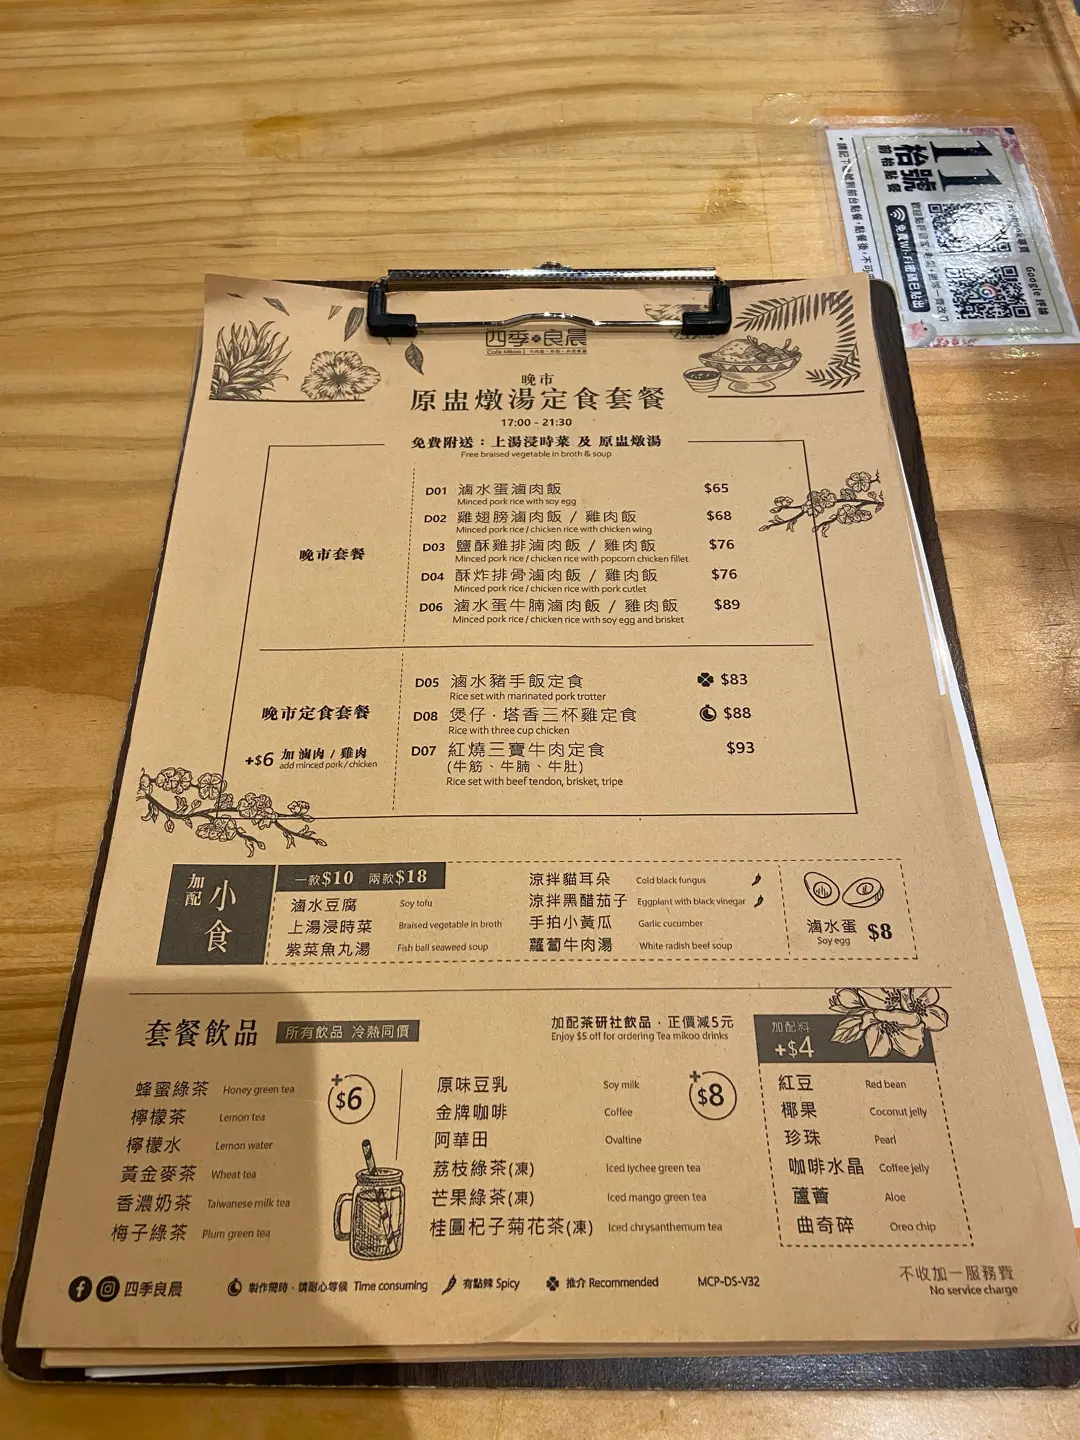 11
拾號
前枱點餐
免費Wi-Fi密碼已貼出
Google 評論
四季良晨
Cafe Mikoo
晚市
原盅燉湯定食套餐
17:00 - 21:30
免費附送：上湯浸時菜 及 原盅燉湯
Free braised vegetable in broth & soup
晚市套餐
D01 滷水蛋滷肉飯 $65
Minced pork rice with soy egg
D02 雞翅膀滷肉飯 / 雞肉飯 $68
Minced pork rice / chicken rice with chicken wing
D03 鹽酥雞排滷肉飯 / 雞肉飯 $76
Minced pork rice / chicken rice with popcorn chicken fillet
D04 酥炸排骨滷肉飯 / 雞肉飯 $76
Minced pork rice / chicken rice with pork cutlet
D06 滷水蛋牛腩滷肉飯 / 雞肉飯 $89
Minced pork rice / chicken rice with soy egg and brisket
晚市定食套餐
+$6 加 滷肉 / 雞肉
add minced pork / chicken
D05 滷水豬手飯定食 $83
Rice set with marinated pork trotter
D08 煲仔·塔香三杯雞定食 $88
Rice with three cup chicken
D07 紅燒三寶牛肉定食 $93
(牛筋、牛腩、牛肚)
Rice set with beef tendon, brisket, tripe
加配 小食
一款$10 兩款$18
滷水豆腐 Soy tofu
上湯浸時菜 Braised vegetable in broth
紫菜魚丸湯 Fish ball seaweed soup
涼拌貓耳朵 Cold black fungus
涼拌黑醋茄子 Eggplant with black vinegar
手拍小黃瓜 Garlic cucumber
蘿蔔牛肉湯 White radish beef soup
滷水蛋 $8
Soy egg
套餐飲品 所有飲品 冷熱同價
加配茶研社飲品，正價減5元
Enjoy $5 off for ordering Tea mikoo drinks
+$6
蜂蜜綠茶 Honey green tea
檸檬茶 Lemon tea
檸檬水 Lemon water
黃金麥茶 Wheat tea
香濃奶茶 Taiwanese milk tea
梅子綠茶 Plum green tea
+$8
原味豆乳 Soy milk
金牌咖啡 Coffee
阿華田 Ovaltine
荔枝綠茶(凍) Iced lychee green tea
芒果綠茶(凍) Iced mango green tea
桂圓杞子菊花茶(凍) Iced chrysanthemum tea
加配料
+$4
紅豆 Red bean
椰果 Coconut jelly
珍珠 Pearl
咖啡水晶 Coffee jelly
蘆薈 Aloe
曲奇碎 Oreo chip
四季良晨
製作需時，請耐心等候 Time consuming
有點辣 Spicy
推介 Recommended
MCP-DS-V32
不收加一服務費
No service charge